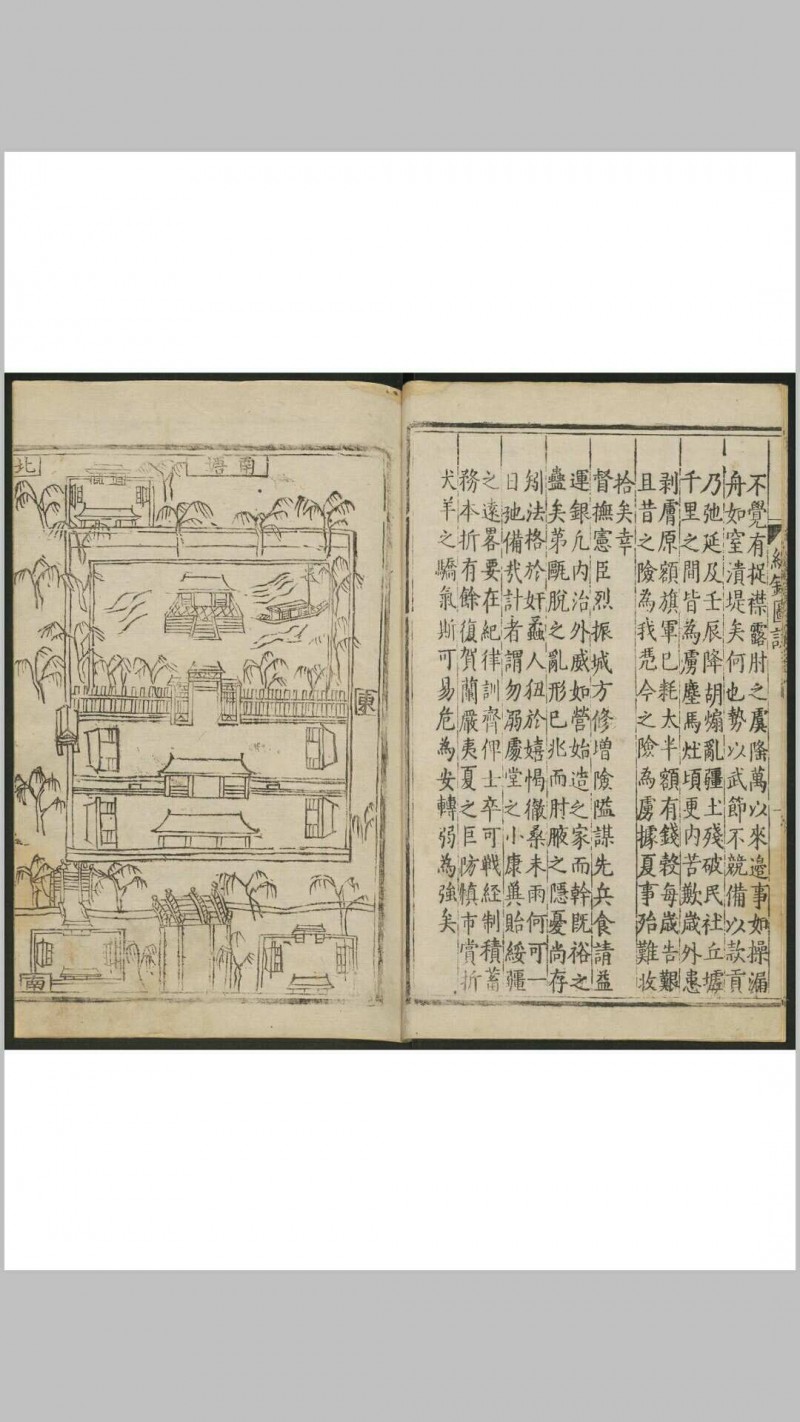 不覺有捉襟露肘之虞隆萬以來邉事如操漏
舟如窒潰堤矣何也勢以武節不競備以款貢
乃弛延及壬辰降胡煽亂疆土殘破民社丘墟
千里之間皆為虜塵馬灶頃更内苦歉歲外患
剥膚原額旗軍已耗太半額有錢穀每歲告艱
且昔之險為我凴今之險為虜據夏事殆難收
拾矣幸
督撫憲臣烈振城方修增險隘謀先兵食請益
運銀凢内治外威如營始造之家而幹既裕之
蠱矣第甌脱之亂形已兆而肘腋之隱憂尚存
矧法格於奸蠡人狃於嬉愒徹桑未雨何可一
日弛備㢤計者謂勿溺處堂之小康兾貽綏疆
之遠畧要在紀律訓齊俾士卒可戦経制積蓄
務本折有餘復賀蘭嚴夷夏之巨防慎市賞折
犬羊之驕氣斯可易危為安轉弱為強矣
北
南塘
東
南